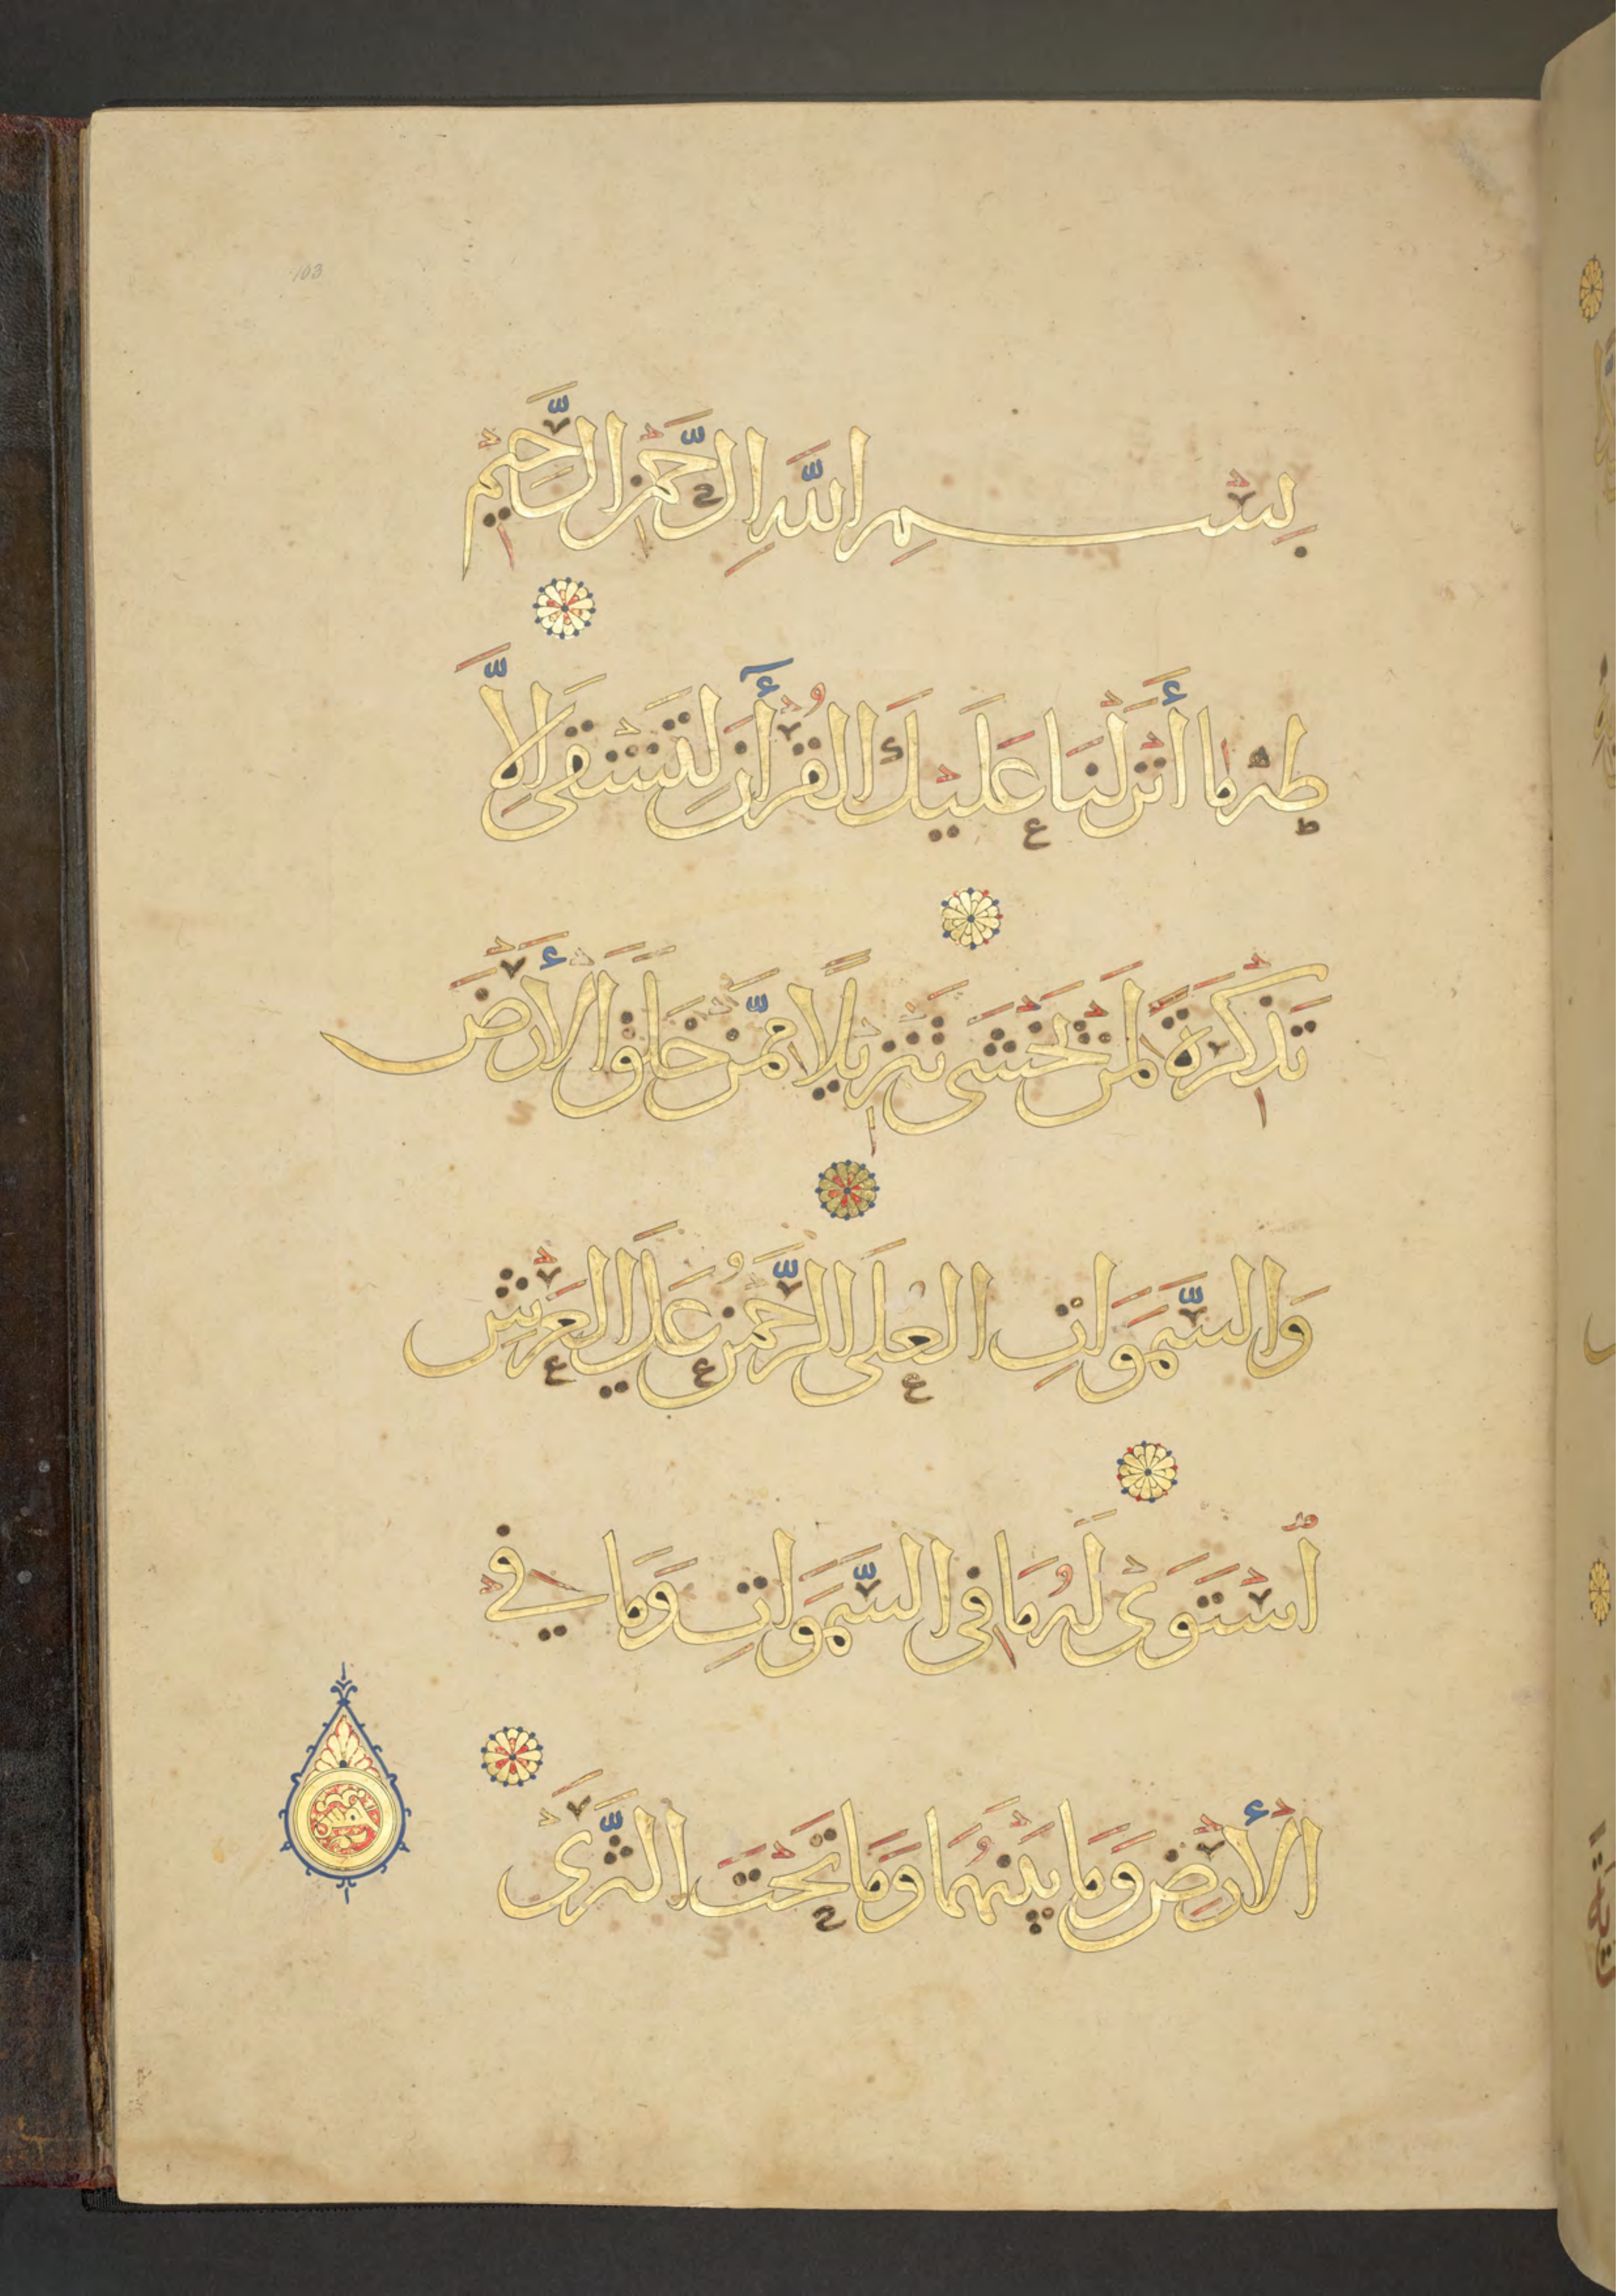 103
بِسْمِ اللَّهِ الرَّحْمٰنِ الرَّحِيْمِ
طٰهٰ مَا أَنْزَلْنَا عَلَيْكَ الْقُرْأٰنَ لِتَشْقَى إِلَّا
تَذْكِرَةً لِمَنْ يَخْشَى تَنْزِيْلًا مِمَّنْ خَلَقَ الْأَرْضَ
وَالسَّمَوَاتِ الْعُلَى الرَّحْمَنُ عَلَى الْعَرْشِ
اسْتَوَى لَهُ مَا فِى السَّمَوَاتِ وَمَا فِي
الْأَرْضِ وَمَا بَيْنَهُمَا وَمَا تَحْتَ الثَّرَى